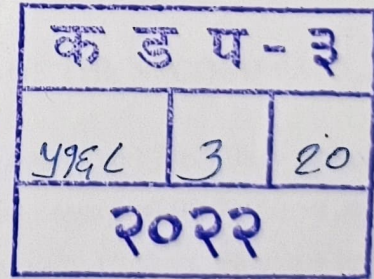 क ड प - ३
५१६८ ३ २०
२०२२